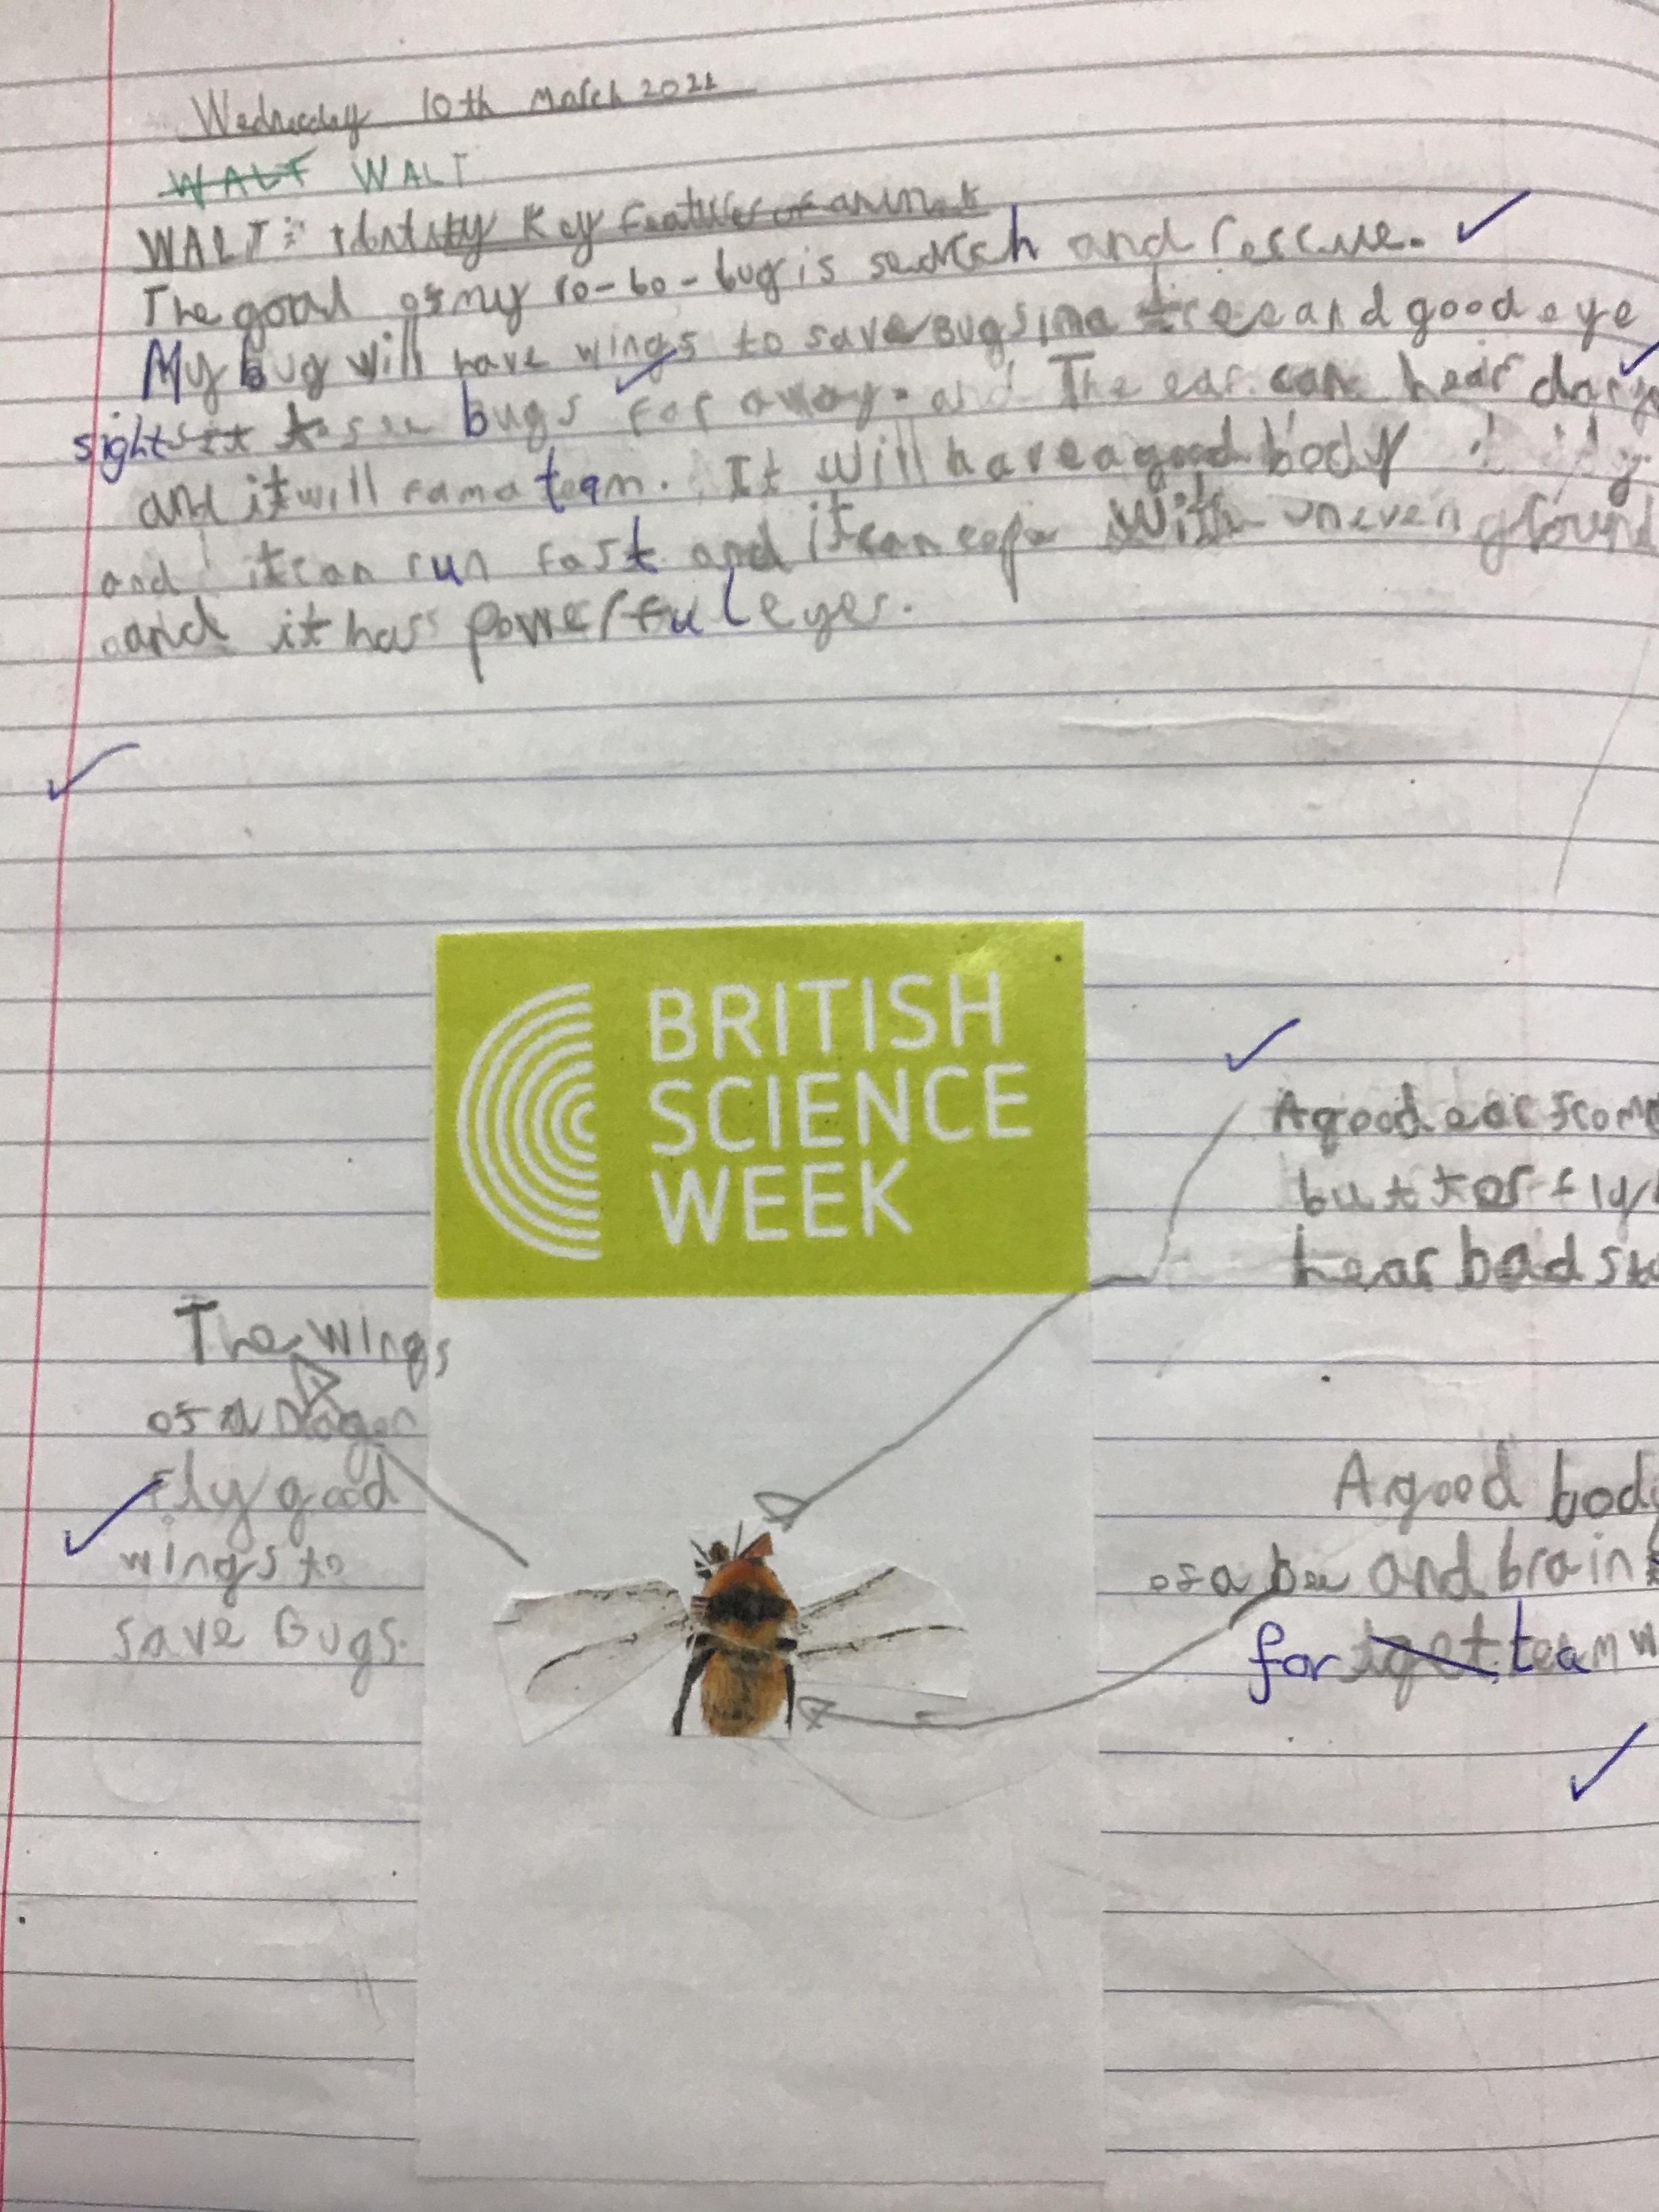 Wednesday 10th March 2021
WALT WALT
WALT: Identify Key Features of animals
The goal of my ro-bo-bug is search and rescue.
My bug will have wings to save Bugs in a tree and good eye
sight to see bugs far away. and The ear can hear
and it will a team. It will have a good body
and it can run fast and it can cope with uneven ground
and it has powerful eyes.
BRITISH
SCIENCE
WEEK
A good ear from
butterfly
hear bad
The wings
of a Dragon
fly good
wings to
save Bugs.
A good body
of a bee and brain
for team